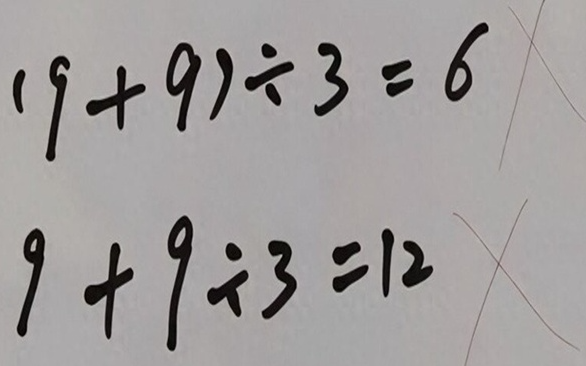 (9+9)÷3=6
9+9÷3=12